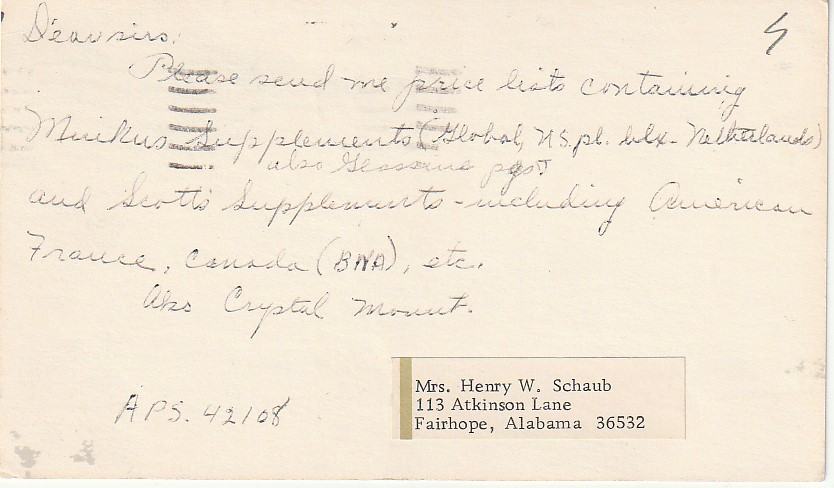 Dear sirs:
Please send me price lists containing
Minkus Supplements (Global, U.S. pl. blx. Netherlands)
also Glassine pgs.
and Scott's Supplements - including American
France, Canada (BNA), etc.
Also Crystal Mount.
APS. 42108
Mrs. Henry W. Schaub
113 Atkinson Lane
Fairhope, Alabama 36532